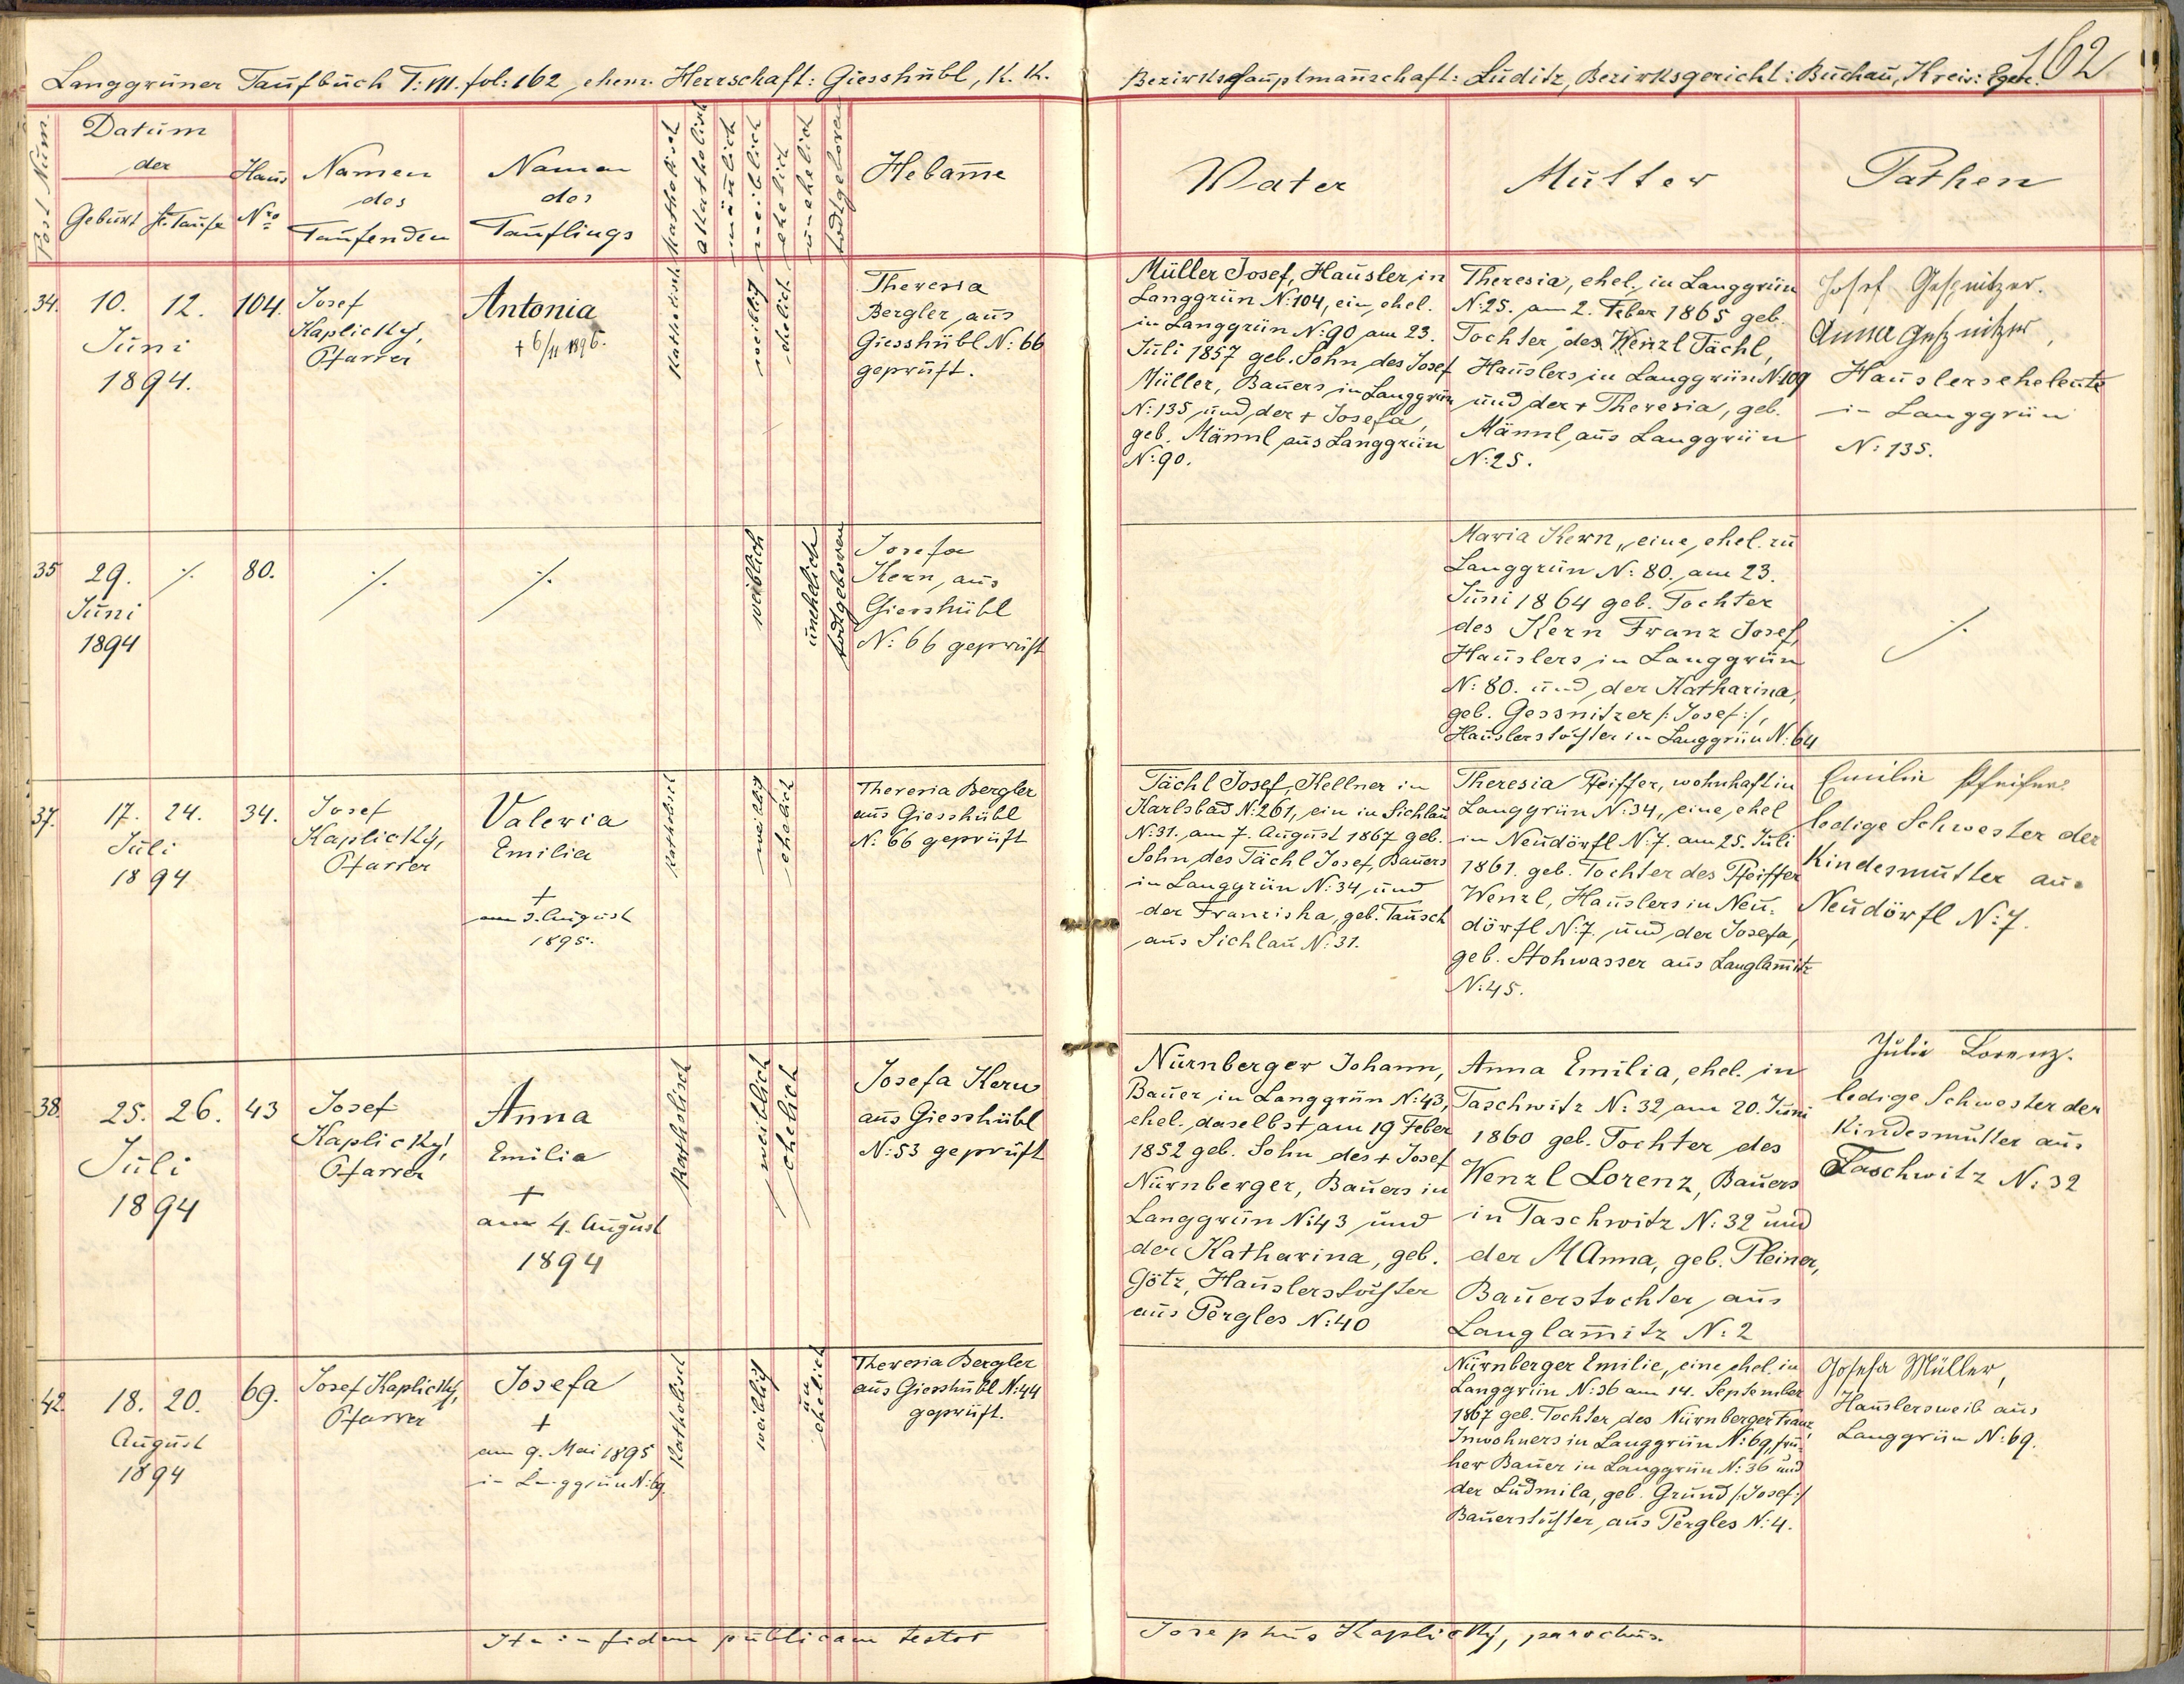 Langgrüner Taufbuch T: VII. fol: 162, ehem. Herrschaft: Giesshübl, K. K. Bezirkshauptmannschaft: Luditz, Bezirksgericht: Buchau, Kreis: Eger.
162
Post Num.
Datum
der
Geburt
hl. Taufe
Haus
Nro
Namen
des
Taufenden
Namen
des
Täuflings
Katholisch
akatholisch
mänlich
weiblich
ehelich
unehelich
todtgeboren
Hebam̄e
Vater
Mutter
Pathen
34.
10.
12.
Juni
1894.
104.
Josef
Kaplicky,
Pfarrer
Antonia
+ 6/11 1896.
Katholisch
weiblich
ehelich
Theresia
Bergler, aus
Giesshübl N: 66
geprüft.
Müller Josef, Häusler in
Langgrün N: 104, ein, ehel.
in Langgrün N: 90 am 23.
Juli 1857 geb. Sohn des Josef
Müller, Bauers in Langgrün
N: 135 und der + Josefa,
geb. Männl aus Langgrün
N: 90.
Theresia, ehel. in Langgrün
N: 25. am 2. Feber 1865 geb.
Tochter des Wenzl Tächl,
Häuslers in Langgrün N: 109
und der + Theresia, geb.
Männl, aus Langgrün
N: 25.
Josef Geßnitzer.
Anna Geßnitzer,
Häuslerseheleute
in Langgrün
N: 135.
35
29.
Juni
1894
·/.
80.
·/.
·/.
weiblich
unehelich
todtgeboren
Josefa
Kern, aus
Giesshübl
N: 66 geprüft
Maria Kern, eine, ehel. zu
Langgrün N: 80. am 23.
Juni 1864 geb. Tochter
des Kern Franz Josef,
Häuslers in Langgrün
N: 80. und der Katharina,
geb. Gessnitzer /: Josef :/,
Häuslerstochter in Langgrün N: 64
·/.
37.
17.
24.
Juli
1894
34.
Josef
Kaplicky,
Pfarrer
Valeria
Emilia
+
am 3. August
1895.
Katholisch
weiblich
ehelich
Theresia Bergler
aus Giesshübl
N: 66 geprüft
Tächl Josef, Kellner in
Karlsbad N: 261, ein in Sichlau
N: 31. am 7. August 1867 geb.
Sohn des Tächl Josef, Bauers
in Langgrün N: 34, und
der Franziska, geb. Tausch
aus Sichlau N: 31.
Theresia Pfeiffer, wohnhaft in
Langgrün N: 34, eine, ehel
in Neudörfl N: 7. am 25. Juli
1861. geb. Tochter des Pfeiffer
Wenzl, Häuslers in Neu-
dörfl N: 7. und der Josefa,
geb. Stohwasser aus Langlam̄itz
N: 45.
Emilie Pfeifer.
ledige Schwester der
Kindesmutter aus
Neudörfl N: 7.
38.
25.
26.
Juli
1894
43
Josef
Kaplicky,
Pfarrer
Anna
Emilia
+
am 4. August
1894
Katholisch
weiblich
ehelich
Josefa Kern
aus Giesshübl
N: 53 geprüft
Nürnberger Johann,
Bauer in Langgrün N: 43,
ehel. daselbst am 19 Feber
1852 geb. Sohn des + Josef
Nürnberger, Bauers in
Langgrün N: 43 und
der Katharina, geb.
Götz, Häuslerstochter
aus Pergles N: 40
Anna Emilia, ehel. in
Taschwitz N: 32 am 20. Juni
1860 geb. Tochter des
Wenzl Lorenz, Bauers
in Taschwitz N: 32 und
der M Anna, geb. Pleiner,
Bauerstochter, aus
Langlam̄itz N: 2
Julie Lorenz.
ledige Schwester der
Kindesmutter aus
Taschwitz N: 32
42.
18.
20.
August
1894
69.
Josef Kaplicky,
Pfarrer
Josefa
+
am 9. Mai 1895
in Langgrün N: 69.
Katholisch
weiblich
un
ehelich
Theresia Bergler
aus Giesshübl N: 44
geprüft.
Nürnberger Emilie, eine, ehel. in
Langgrün N: 36 am 14. September
1867 geb. Tochter des Nürnberger Franz,
Inwohners in Langgrün N: 69, frü-
her Bauer in Langgrün N: 36 und
der Ludmila, geb. Grund /: Josef :/
Bauerstochter, aus Pergles N: 4.
Josefa Müller,
Häuslersweib aus
Langgrün N: 69.
Ita in fidem publicam testor
Josephus Kaplicky, parochus.